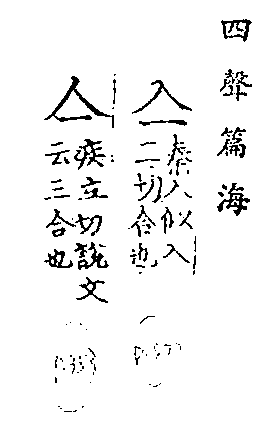 四聲篇海
亼
秦入似入
二切合也
亼
疾立切說文
云三合也